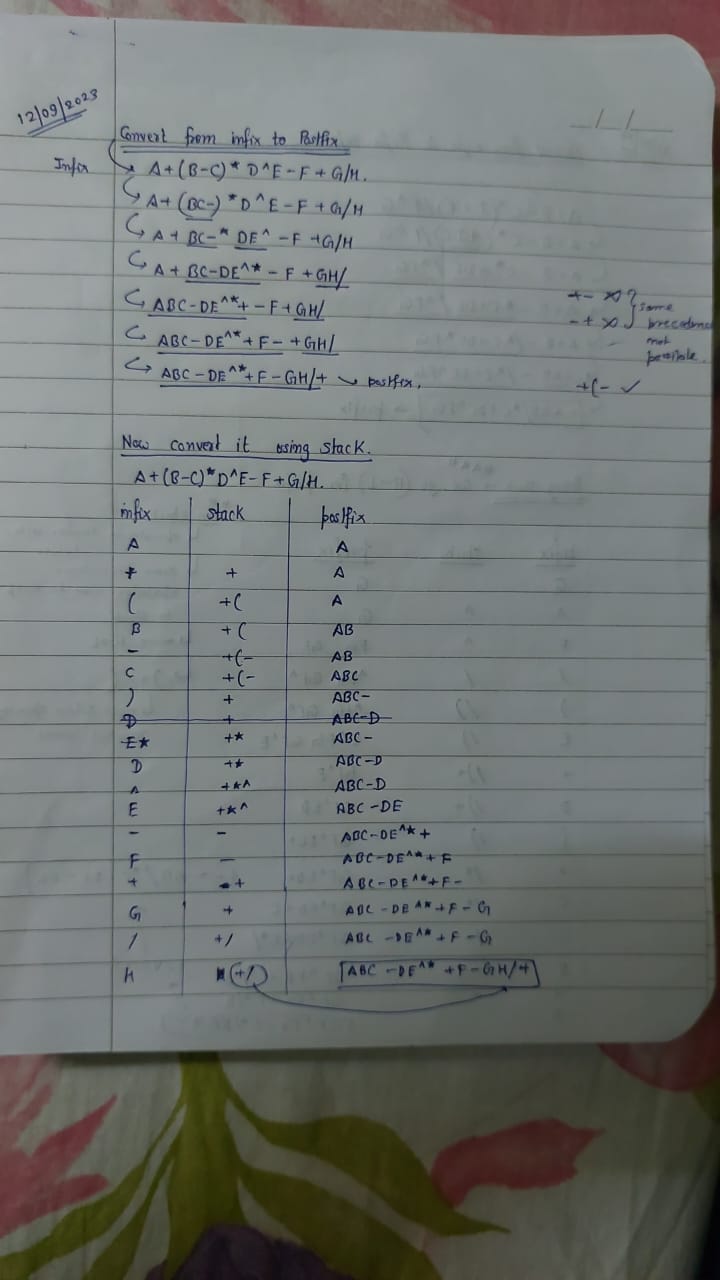 12/09/2023
Convert from infix to Postfix
Infix A+(B-C)* D^E-F+G/H.
A+ (BC-) *D^E-F+G/H
A + BC-* DE^ -F +G/H
A + BC-DE^* - F + GH/
ABC-DE^*+ - F + GH/
ABC-DE^*+F- +GH/
ABC-DE^*+F-GH/+ → postfix.
+- x
-+ x
same
precedence
not
possible.
+(- ✓
Now convert it using stack.
A+(B-C)*D^E-F+G/H.
infix stack postfix
A A
+ + A
( +( A
B +( AB
- +(- AB
C +(- ABC
) + ABC-
D + ABC-D
E* +* ABC-
D +* ABC-D
^ +*^ ABC-D
E +*^ ABC-DE
- - ABC-DE^*+
F - ABC-DE^*+F
+ + ABC-DE^*+F-
G + ABC-DE^*+F-G
/ +/ ABC-DE^*+F-G
H +/ ABC-DE^*+F-GH/+